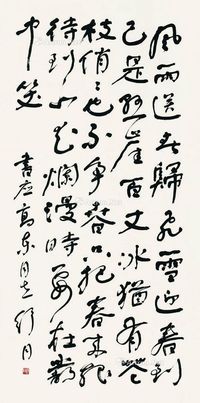 風雨送春歸飛雪迎春到
已是懸崖百丈冰猶有花
枝俏々也不争春只把春来报
待到山花爛漫時她在叢
中笑
書应高東同志舒同